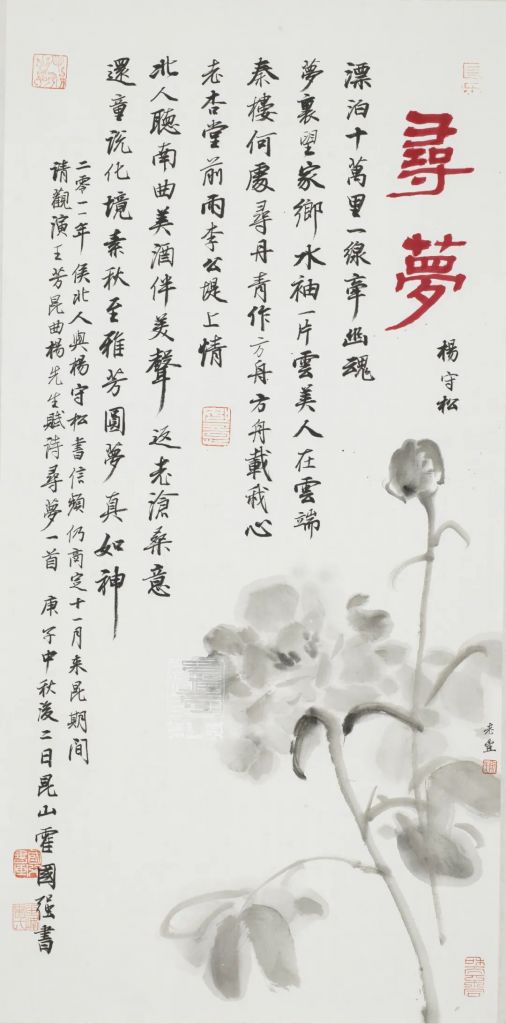 尋夢
楊守松
漂泊十萬里一線牽幽魂
夢裏望家鄉水袖一片雲美人在雲端
秦樓何處尋丹青作方舟方舟載我心
老杏堂前雨李公堤上情
北人聽南曲美酒伴美聲返老滄桑意
還童説化境素秋至雅芳圓夢真如神
二零一一年侯北人與楊守松書信頻仍商定十一月来昆期間
请觀演王芳昆曲楊先生賦诗尋夢一首 庚子中秋後二日昆山霍國强書